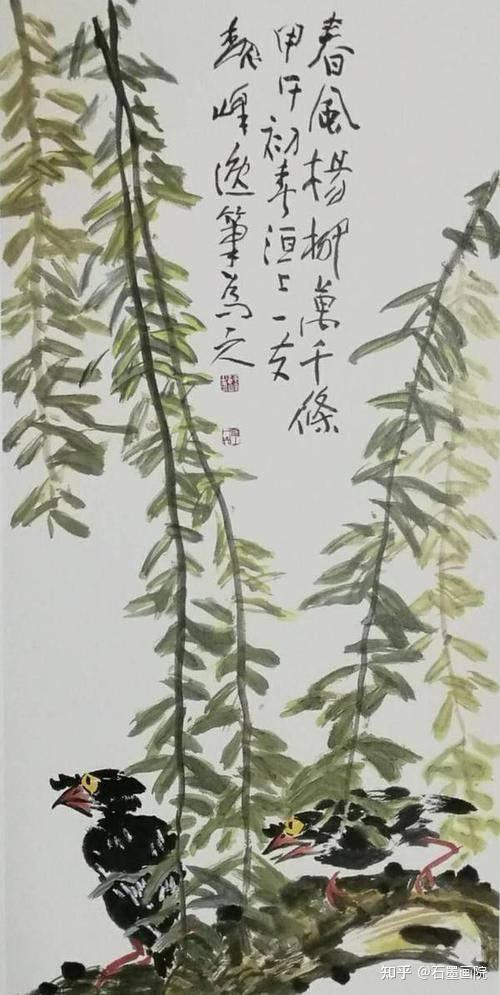 春風楊柳萬千條
甲午初春洹上一友
趙峰逸筆為之
知乎 @石墨画院